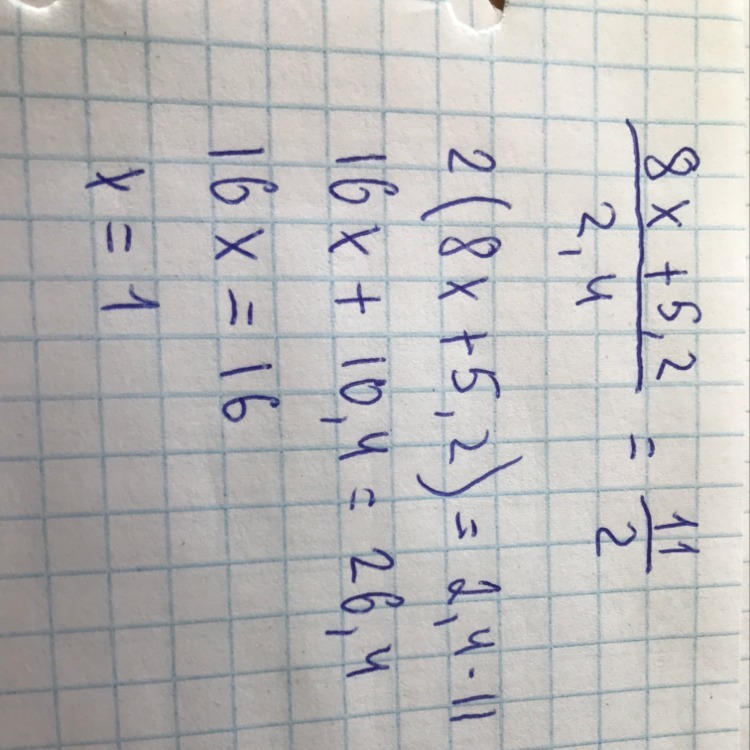 8x + 5,2 / 2,4 = 11/2
2(8x + 5,2) = 2,4 · 11
16x + 10,4 = 26,4
16x = 16
x = 1